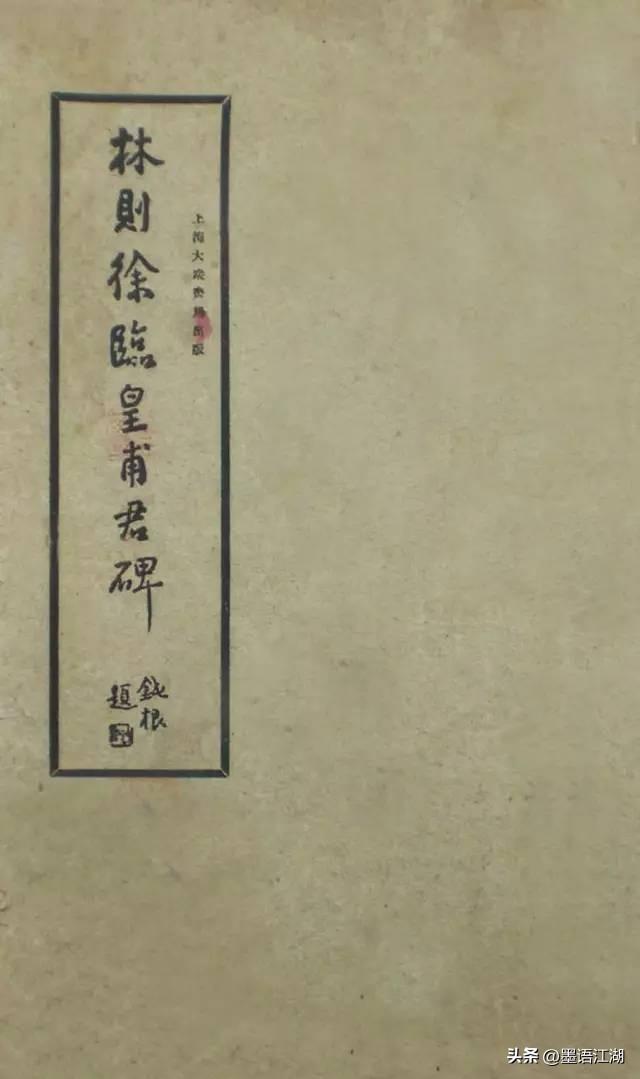 上海大眾書局出版
林則徐臨皇甫君碑
鈍根
題
头条 @墨语江湖